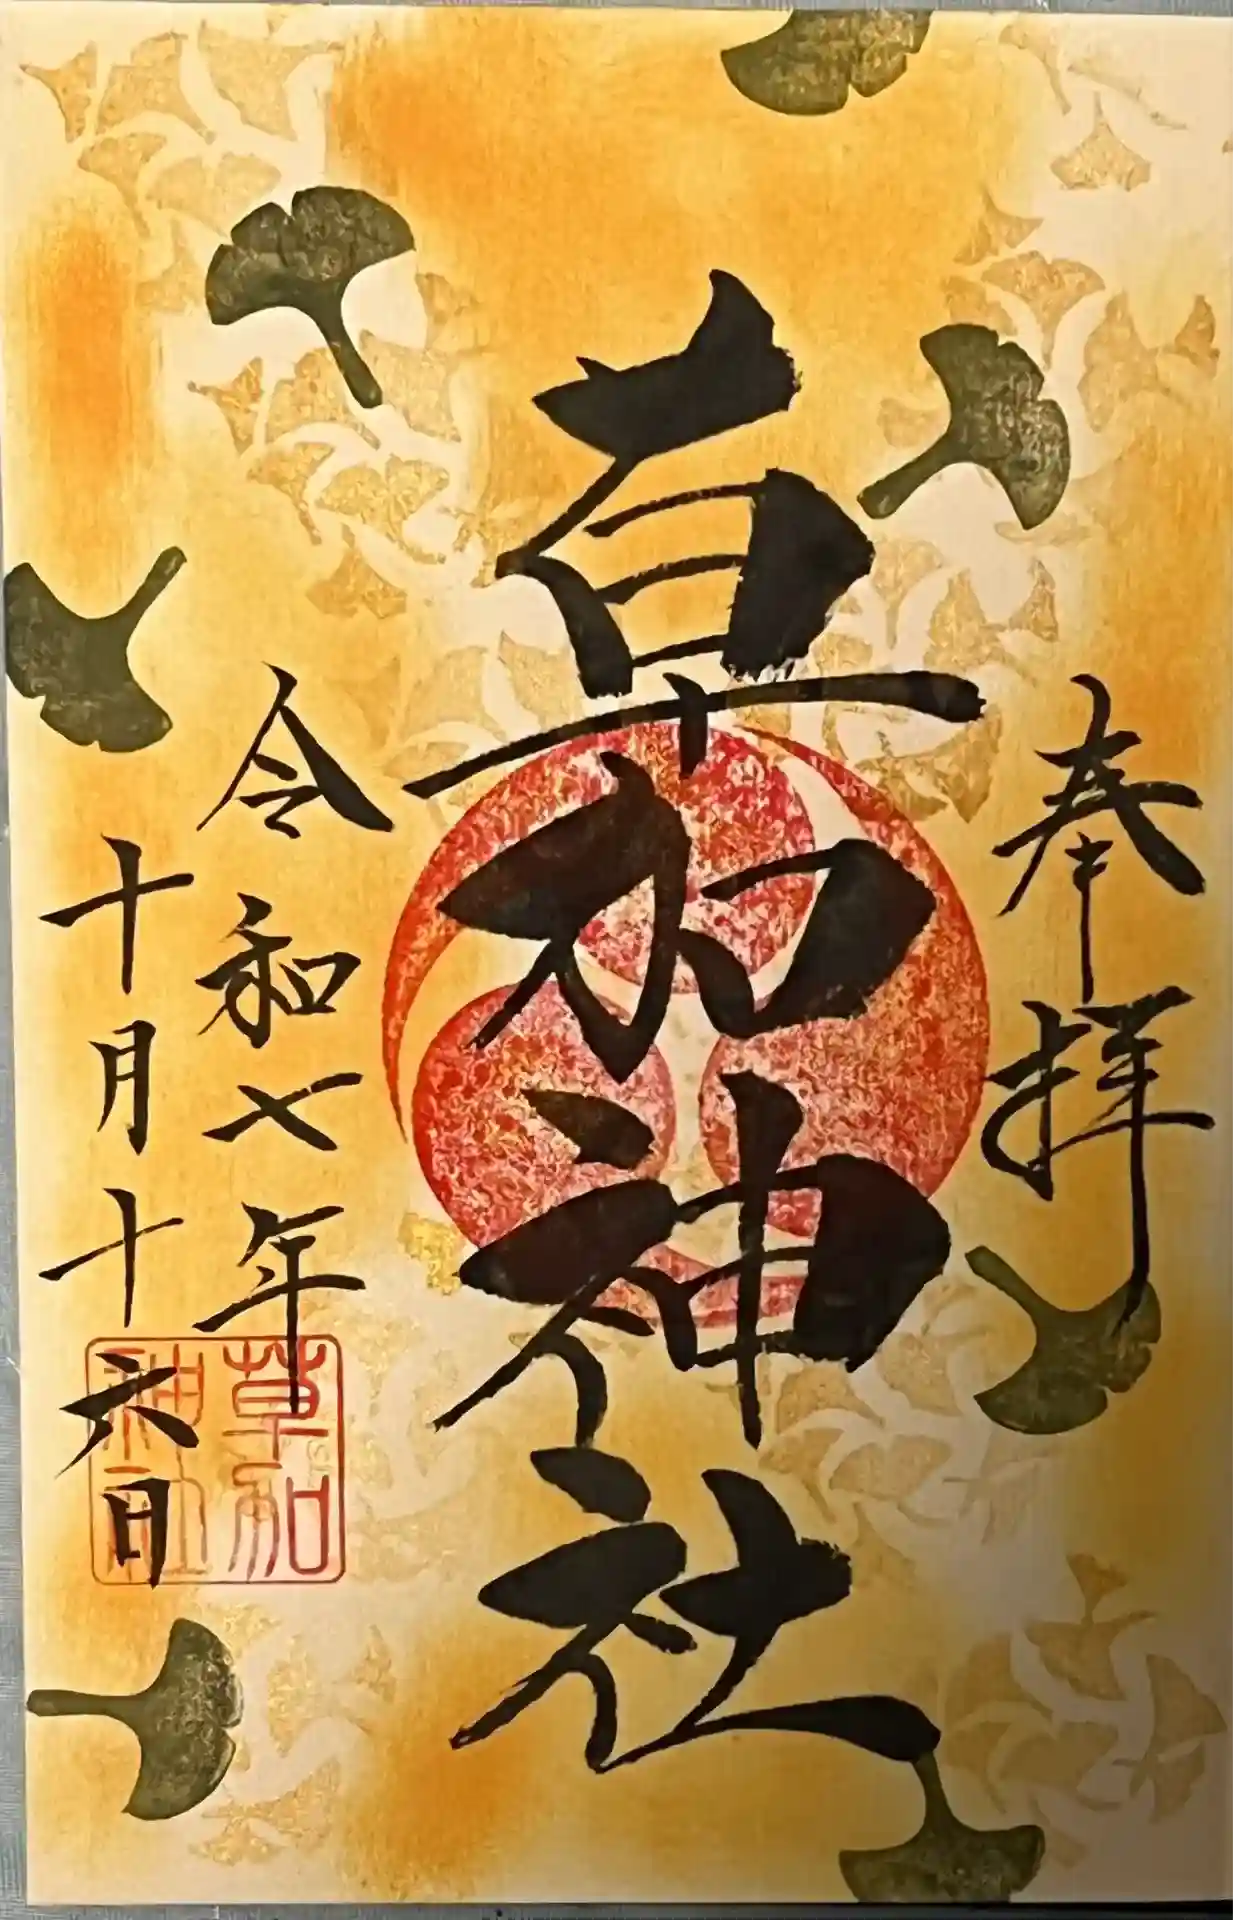 奉拝
草加神社
令和七年
十月十六日
草加
神社